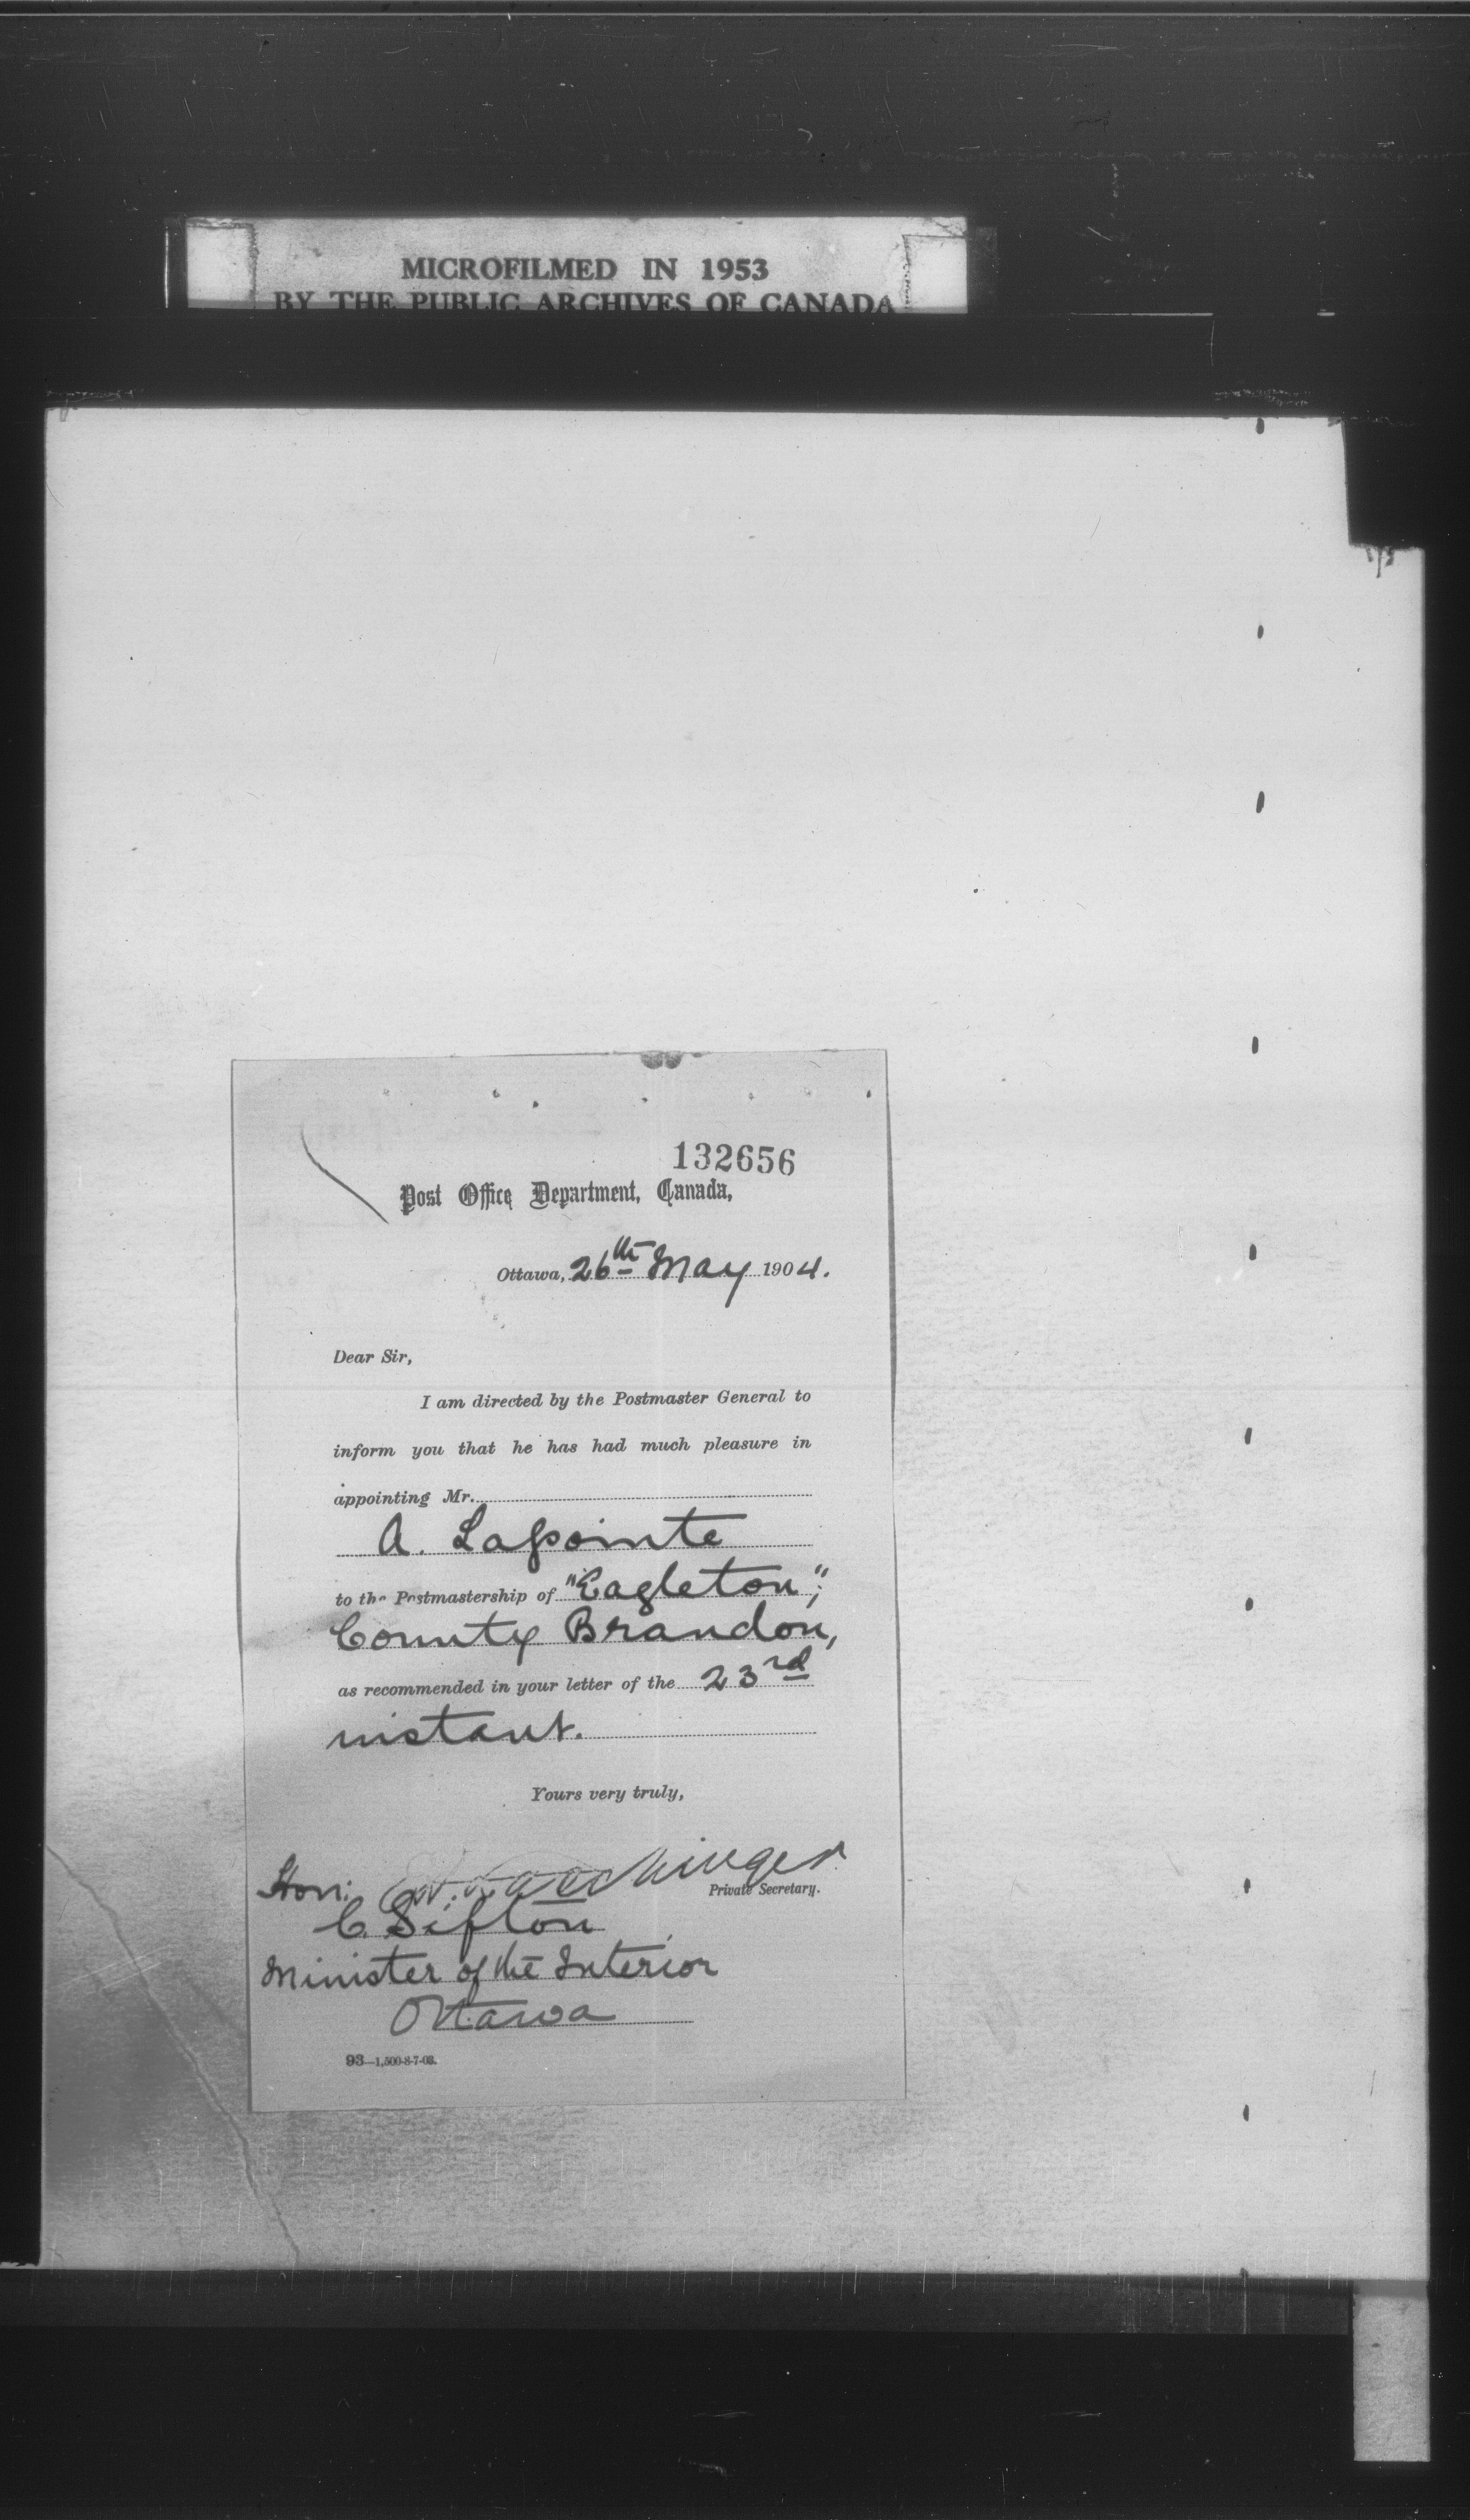 MICROFILMED IN 1953
BY THE PUBLIC ARCHIVES OF CANADA
132656
Post Office Department, Canada,
Ottawa, 26th May 1904.
Dear Sir,
I am directed by the Postmaster General to
inform you that he has had much pleasure in
appointing Mr.
A. Lapointe
to the Postmastership of "Eagleton";
County Brandon,
as recommended in your letter of the 23rd
instant.
Yours very truly,
Hon:
Private Secretary.
C. Sifton
Minister of the Interior
Ottawa
93—1,500-8-7-03.